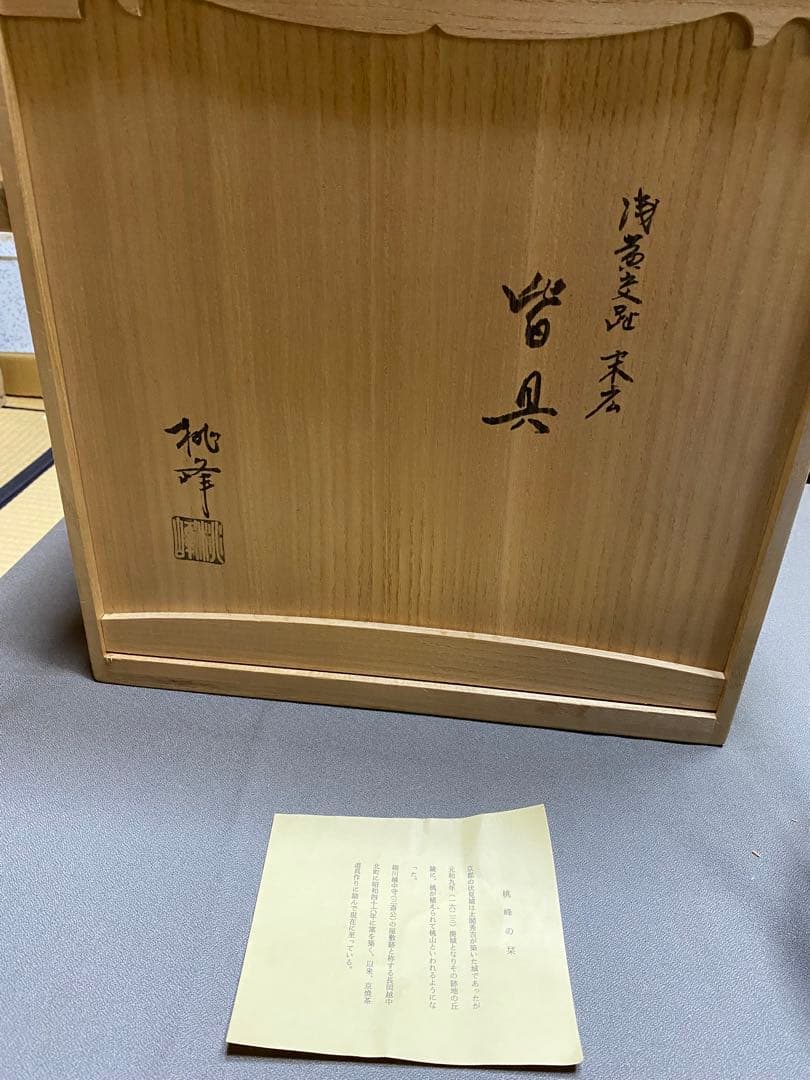 浅黄交趾 末広
皆具
桃峰
桃峰
桃峰の栞
京都の伏見城は太閤秀吉が築いた城であったが
元和九年(一六二三)廃城となりその跡地の丘
陵に、桃が植えられて桃山といわれるようにな
った。
細川越中守(三斎公)の屋敷跡と称する長岡越中
北町に昭和四十六年に窯を築く、以来、京焼茶
道具作りに励んで現在に至っている。